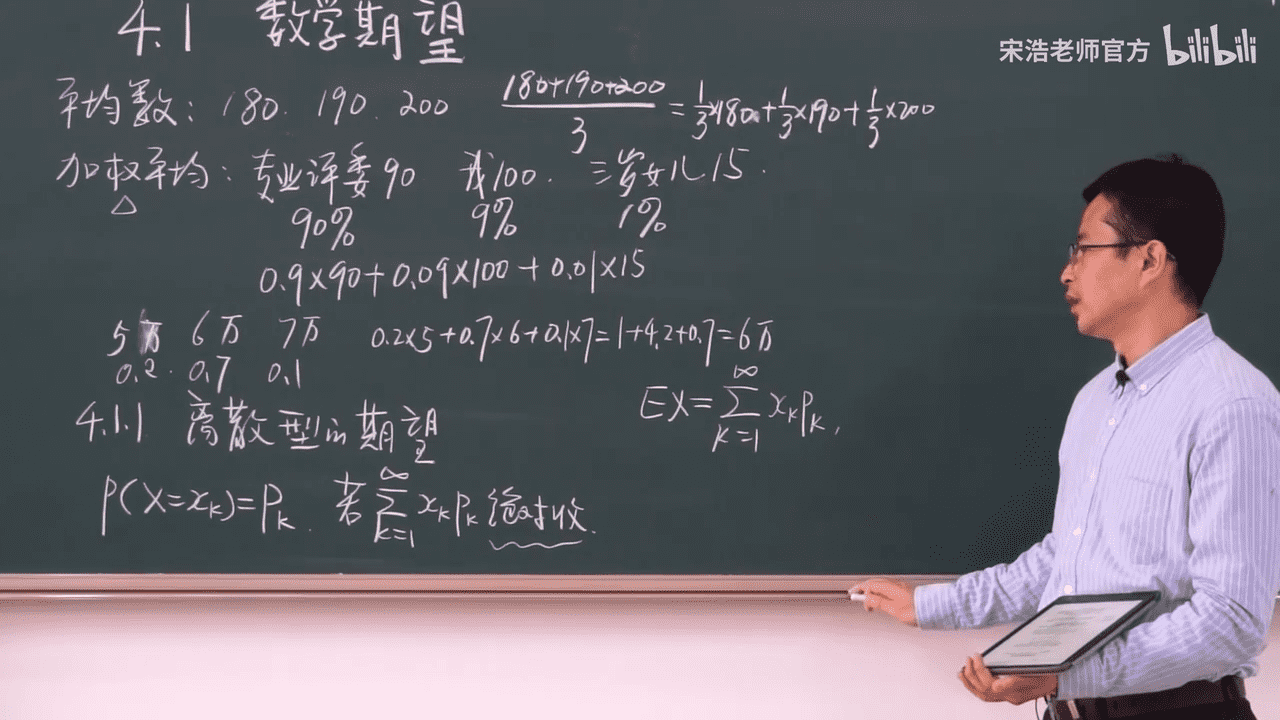 4.1 数学期望
宋浩老师官方 bilibili
平均数: 180. 190. 200 (180+190+200)/3 = 1/3×180+1/3×190+1/3×200
加权平均: 专业评委90 我100. 三岁女儿15.
△
90% 9% 1%
0.9×90+0.09×100+0.01×15
5万 6万 7万 0.2×5+0.7×6+0.1×7=1+4.2+0.7=6万
0.2. 0.7 0.1
4.1.1 离散型的期望
EX=∑_{k=1}^{∞} x_k p_k,
P(X=x_k)=P_k. 若∑_{k=1}^{∞} x_k p_k 绝对收.